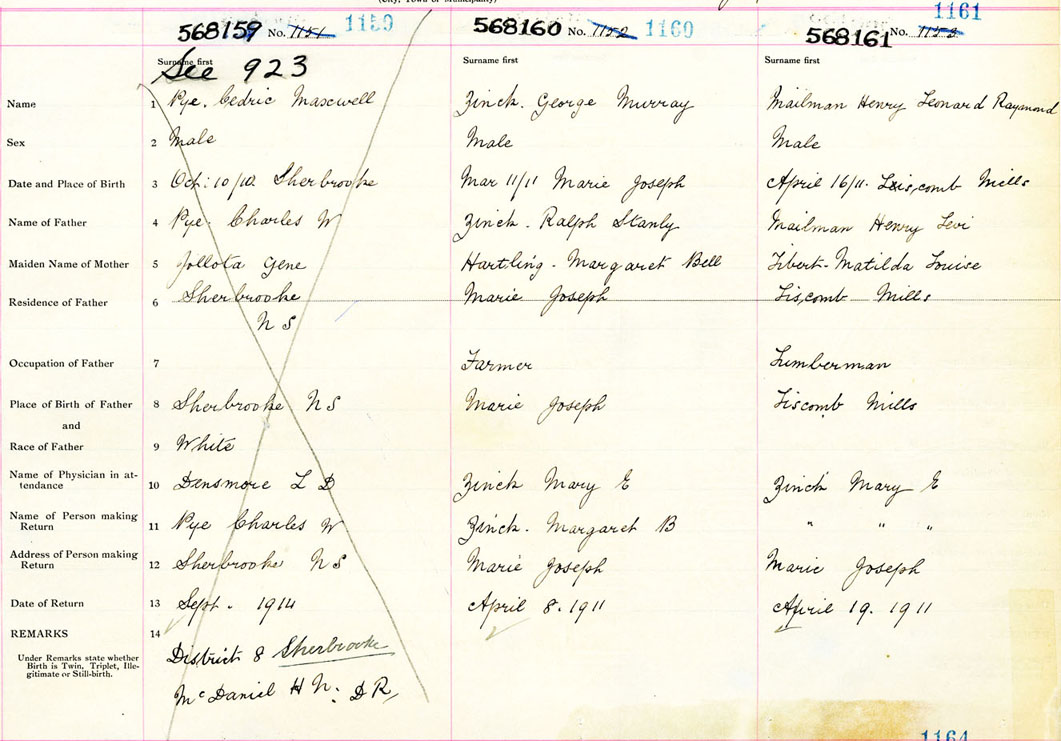 (City, Town or Municipality)
568159 No. 1151 1159 568160 No. 1152 1160 568161 No. 1153 1161
Surname first Surname first Surname first
See 923
Name 1 Pye. Cedric Maxwell Zinck. George Murray Mailman Henry Leonard Rayamond
Sex 2 Male Male Male
Date and Place of Birth 3 Oct: 10/10. Sherbrooke Mar 11/11 Marie Joseph April 16/11. Liscomb Mills
Name of Father 4 Pye. Charles W Zinck. Ralph Stanly Mailman Henry Levi
Maiden Name of Mother 5 Jollota Gene Hartling. Margaret Bell Tibert. Matilda Louise
Residence of Father 6 Sherbrooke Marie Joseph Liscomb Mills
N S
Occupation of Father 7 Farmer Lumberman
Place of Birth of Father 8 Sherbrooke N S Marie Joseph Liscomb Mills
and
Race of Father 9 White
Name of Physician in at-
tendance 10 Densmore L D Zinck Mary E Zinck Mary E
Name of Person making
Return 11 Pye Charles W Zinck. Margaret B " " "
Address of Person making
Return 12 Sherbrooke N S Marie Joseph Marie Joseph
Date of Return 13 Sept. 1914 April 8. 1911 April 19. 1911
REMARKS 14
Under Remarks state whether
Birth is Twin, Triplet, Ille-
gitimate or Still-birth.
District 8 Sherbrooke
McDaniel H N. D R
1164